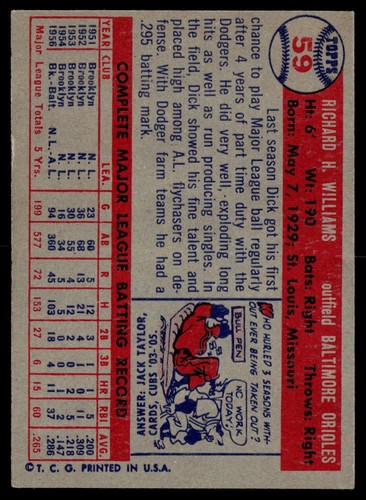 TOPPS
59
RICHARD H. WILLIAMS outfield BALTIMORE ORIOLES
Ht: 6' Wt: 190 Bats: Right Throws: Right
Born: May 7, 1929: St. Louis, Missouri
Last season Dick got his first
chance to play Major League ball regularly
after 4 years of part time, duty with the
Dodgers. He did very well, exploding long
hits as well as run producing singles. In
the field, Dick showed his fine talent and
placed high among A.L. flychasers on de-
fense. With Dodger farm teams he had a
.295 batting mark.
WHO HURLED 3 SEASONS WITH-
OUT EVER BEING TAKEN OUT?
BULL PEN
NO WORK
TODAY!
ANSWER: JACK TAYLOR,
CARDS - CUBS '03-'05.
COMPLETE MAJOR LEAGUE BATTING RECORD
YEAR CLUB LEA. G AB R H 2B 3B HR RBI AVG.
1951 Brooklyn N. L. 23 60 5 12 3 1 1 5 .200
1952 Brooklyn N. L. 36 68 13 21 4 1 0 11 .309
1953 Brooklyn N. L. 30 55 4 12 2 0 2 5 .218
1954 Brooklyn N. L. 16 34 5 5 0 0 1 2 .147
1956 Bk.-Balt. N.L.-A.L. 94 360 45 103 18 4 11 37 .286
Major League Totals 5 Yrs. 199 577 72 153 27 6 15 60 .265
© T. C. G. PRINTED IN U.S.A.